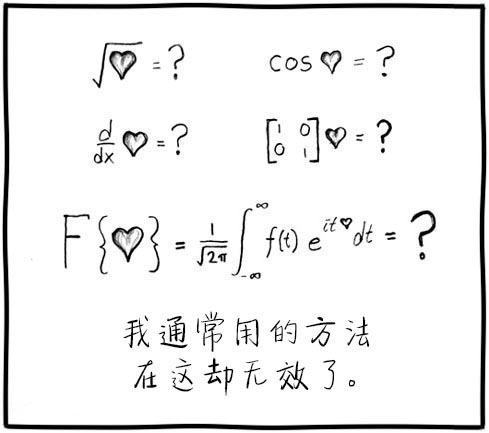 √♥ = ? cos ♥ = ?
d/dx ♥ = ? [1 0; 0 1] ♥ = ?
F{♥} = 1/√2π ∫_-∞^∞ f(t) e^it♥ dt = ?
我通常用的方法
在这却无效了。